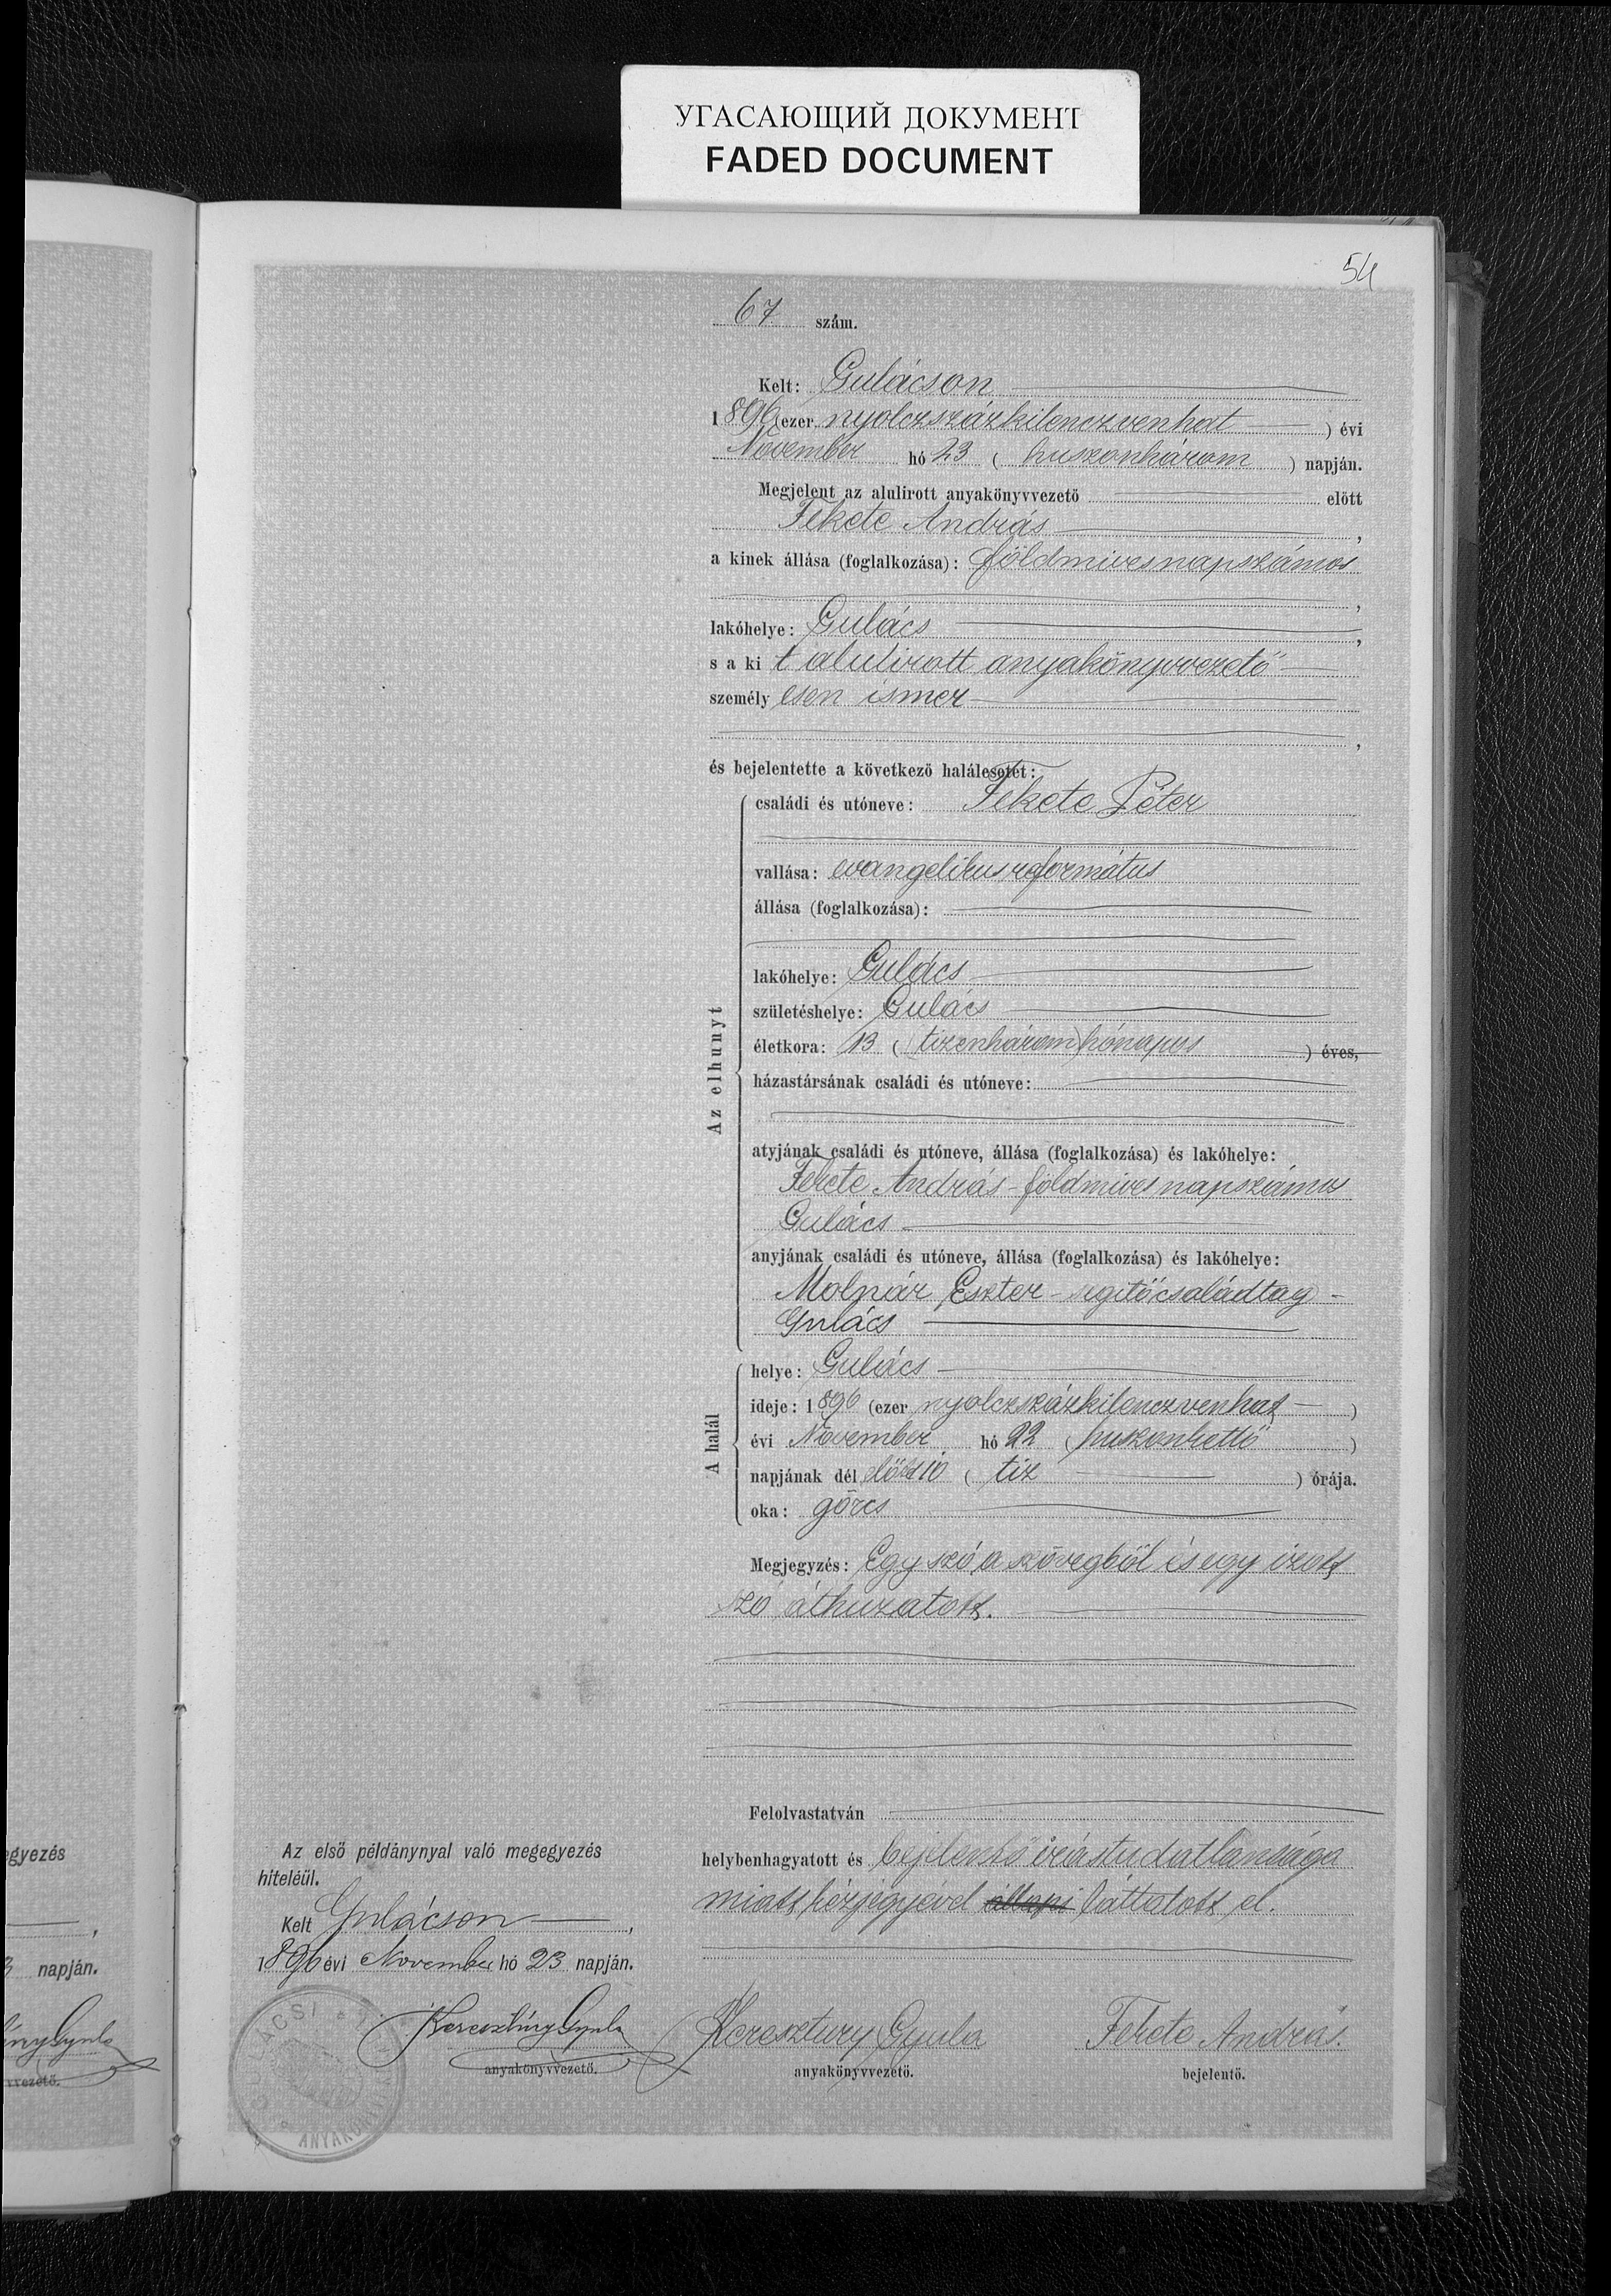 УГАСАЮЩИЙ ДОКУМЕНТ
FADED DOCUMENT
54
67 szám.
Kelt: Gulácson
1896 (ezer nyolczszázkilenczvenhat ) évi
November hó 23 ( huszonhárom ) napján.
Megjelent az alulirott anyakönyvvezető előtt
Fekete András ,
a kinek állása (foglalkozása): földmivesnapszámos
,
lakóhelye: Gulács ,
s a ki t alulirott anyakönyvvezető
személy esen ismer
,
és bejelentette a következő halálesetet:
Az elhunyt
családi és utóneve: Fekete Péter
vallása: evangelikus református
állása (foglalkozása):
lakóhelye: Gulács
születéshelye: Gulács
életkora: 13 ( tizenhárom) hónapos ) éves,
házastársának családi és utóneve:
atyjának családi és utóneve, állása (foglalkozása) és lakóhelye:
Fekete András - földmives napszámos
Gulács
anyjának családi és utóneve, állása (foglalkozása) és lakóhelye:
Molnár Eszter - segitő családtag -
Gulács
A halál
helye: Gulács
ideje: 1896 (ezer nyolczszázkilenczvenhat )
évi November hó 22 ( huszonkettő )
napjának dél előtt 10 ( tiz ) órája.
oka: görcs
Megjegyzés: Egy szó a szövegből és egy irott
szó áthuzatott.
Felolvastatván
helybenhagyatott és bejelentő irástudatlansága
miatt kézjegyével láttatott el.
Az első példánynyal való megegyezés
hiteléül.
Kelt Gulácson ,
1896 évi November hó 23 napján.
Keresztúry Gyula
anyakönyvvezető.
Keresztury Gyula
anyakönyvvezető.
Fekete András.
bejelentő.
GULÁCSI
ANYAKÖNYVI
egyezés
,
3 napján.